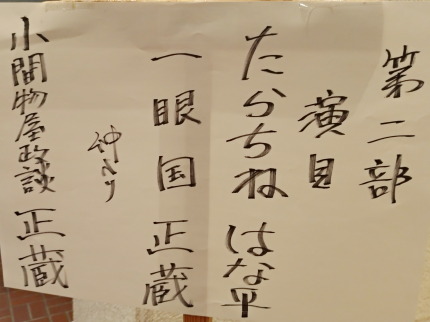 第二部
演目
たらちね はな平
一眼国 正蔵
仲入り
小間物屋政談 正蔵